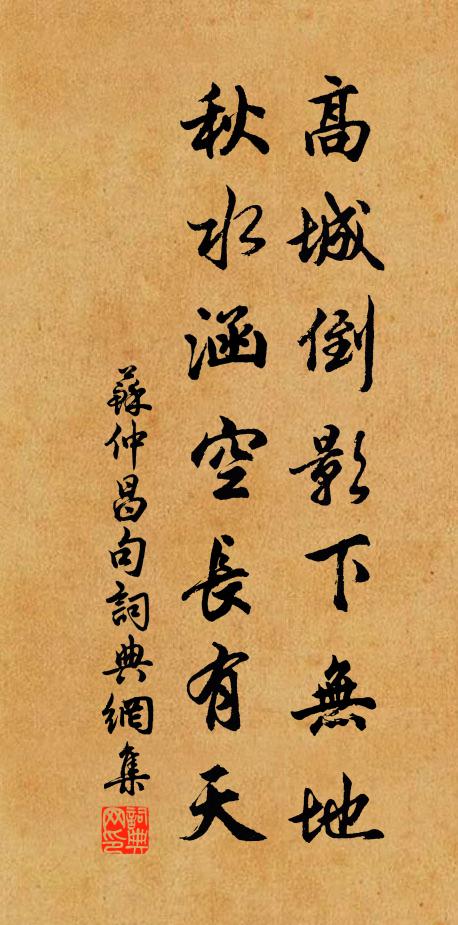 高城倒影下無地
秋水涵空長有天
蘇仲昌句詞典網集
詞典网印